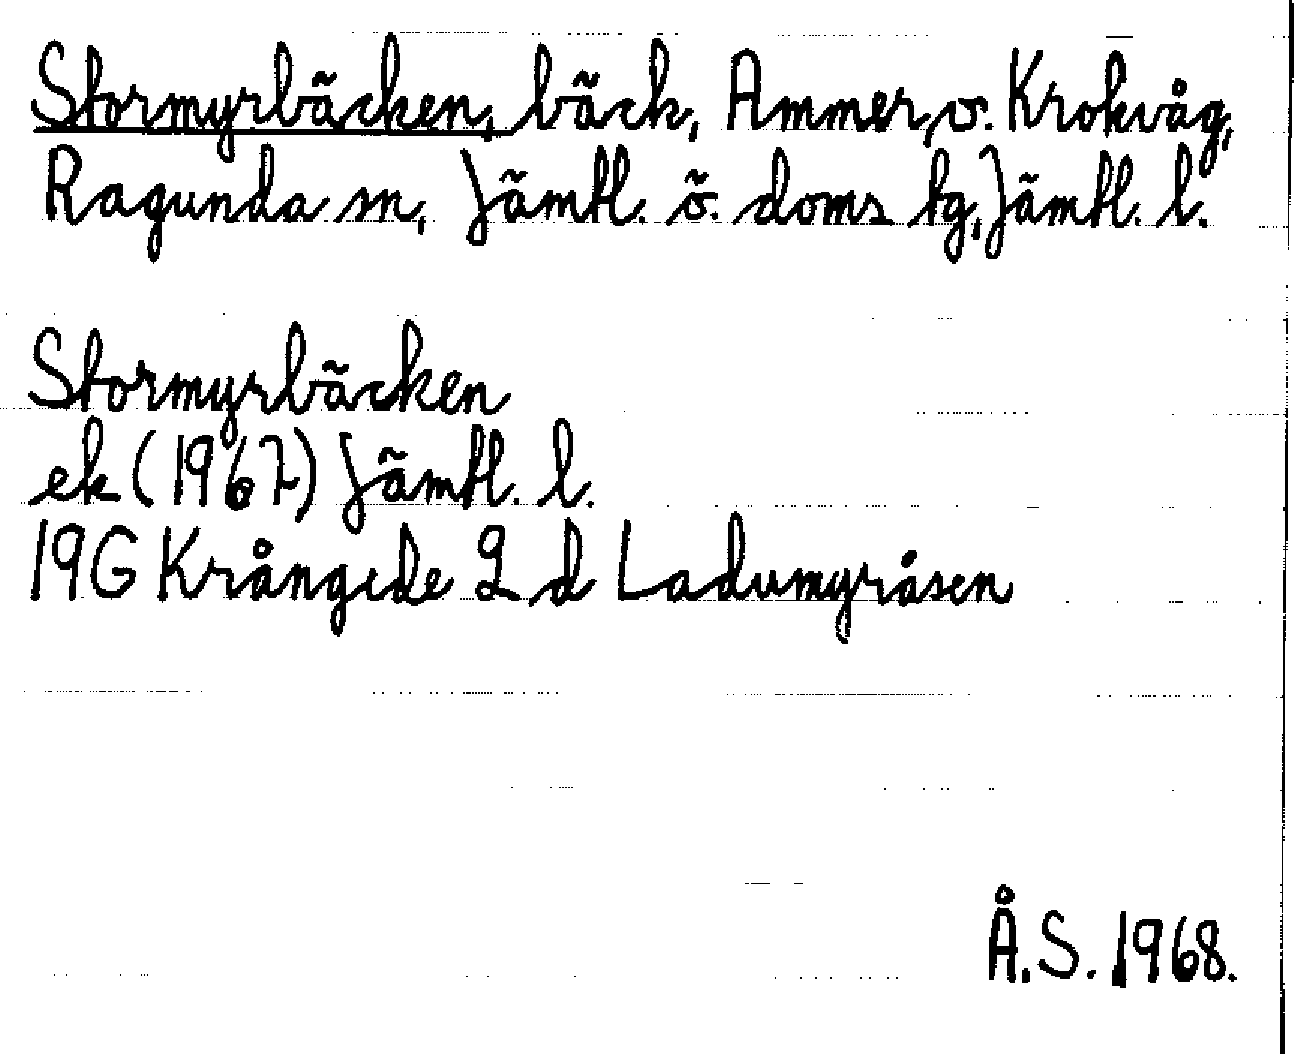 Stormyrbäcken, bäck, Ammer, o. Krokvåg,
Ragunda sn, Jämtl. ö. doms tg, Jämtl. l.
Stormyrbäcken
ek (1967) Jämtl. l.
19G Krångede 2 d Ladumyråsen
Å.S. 1968.